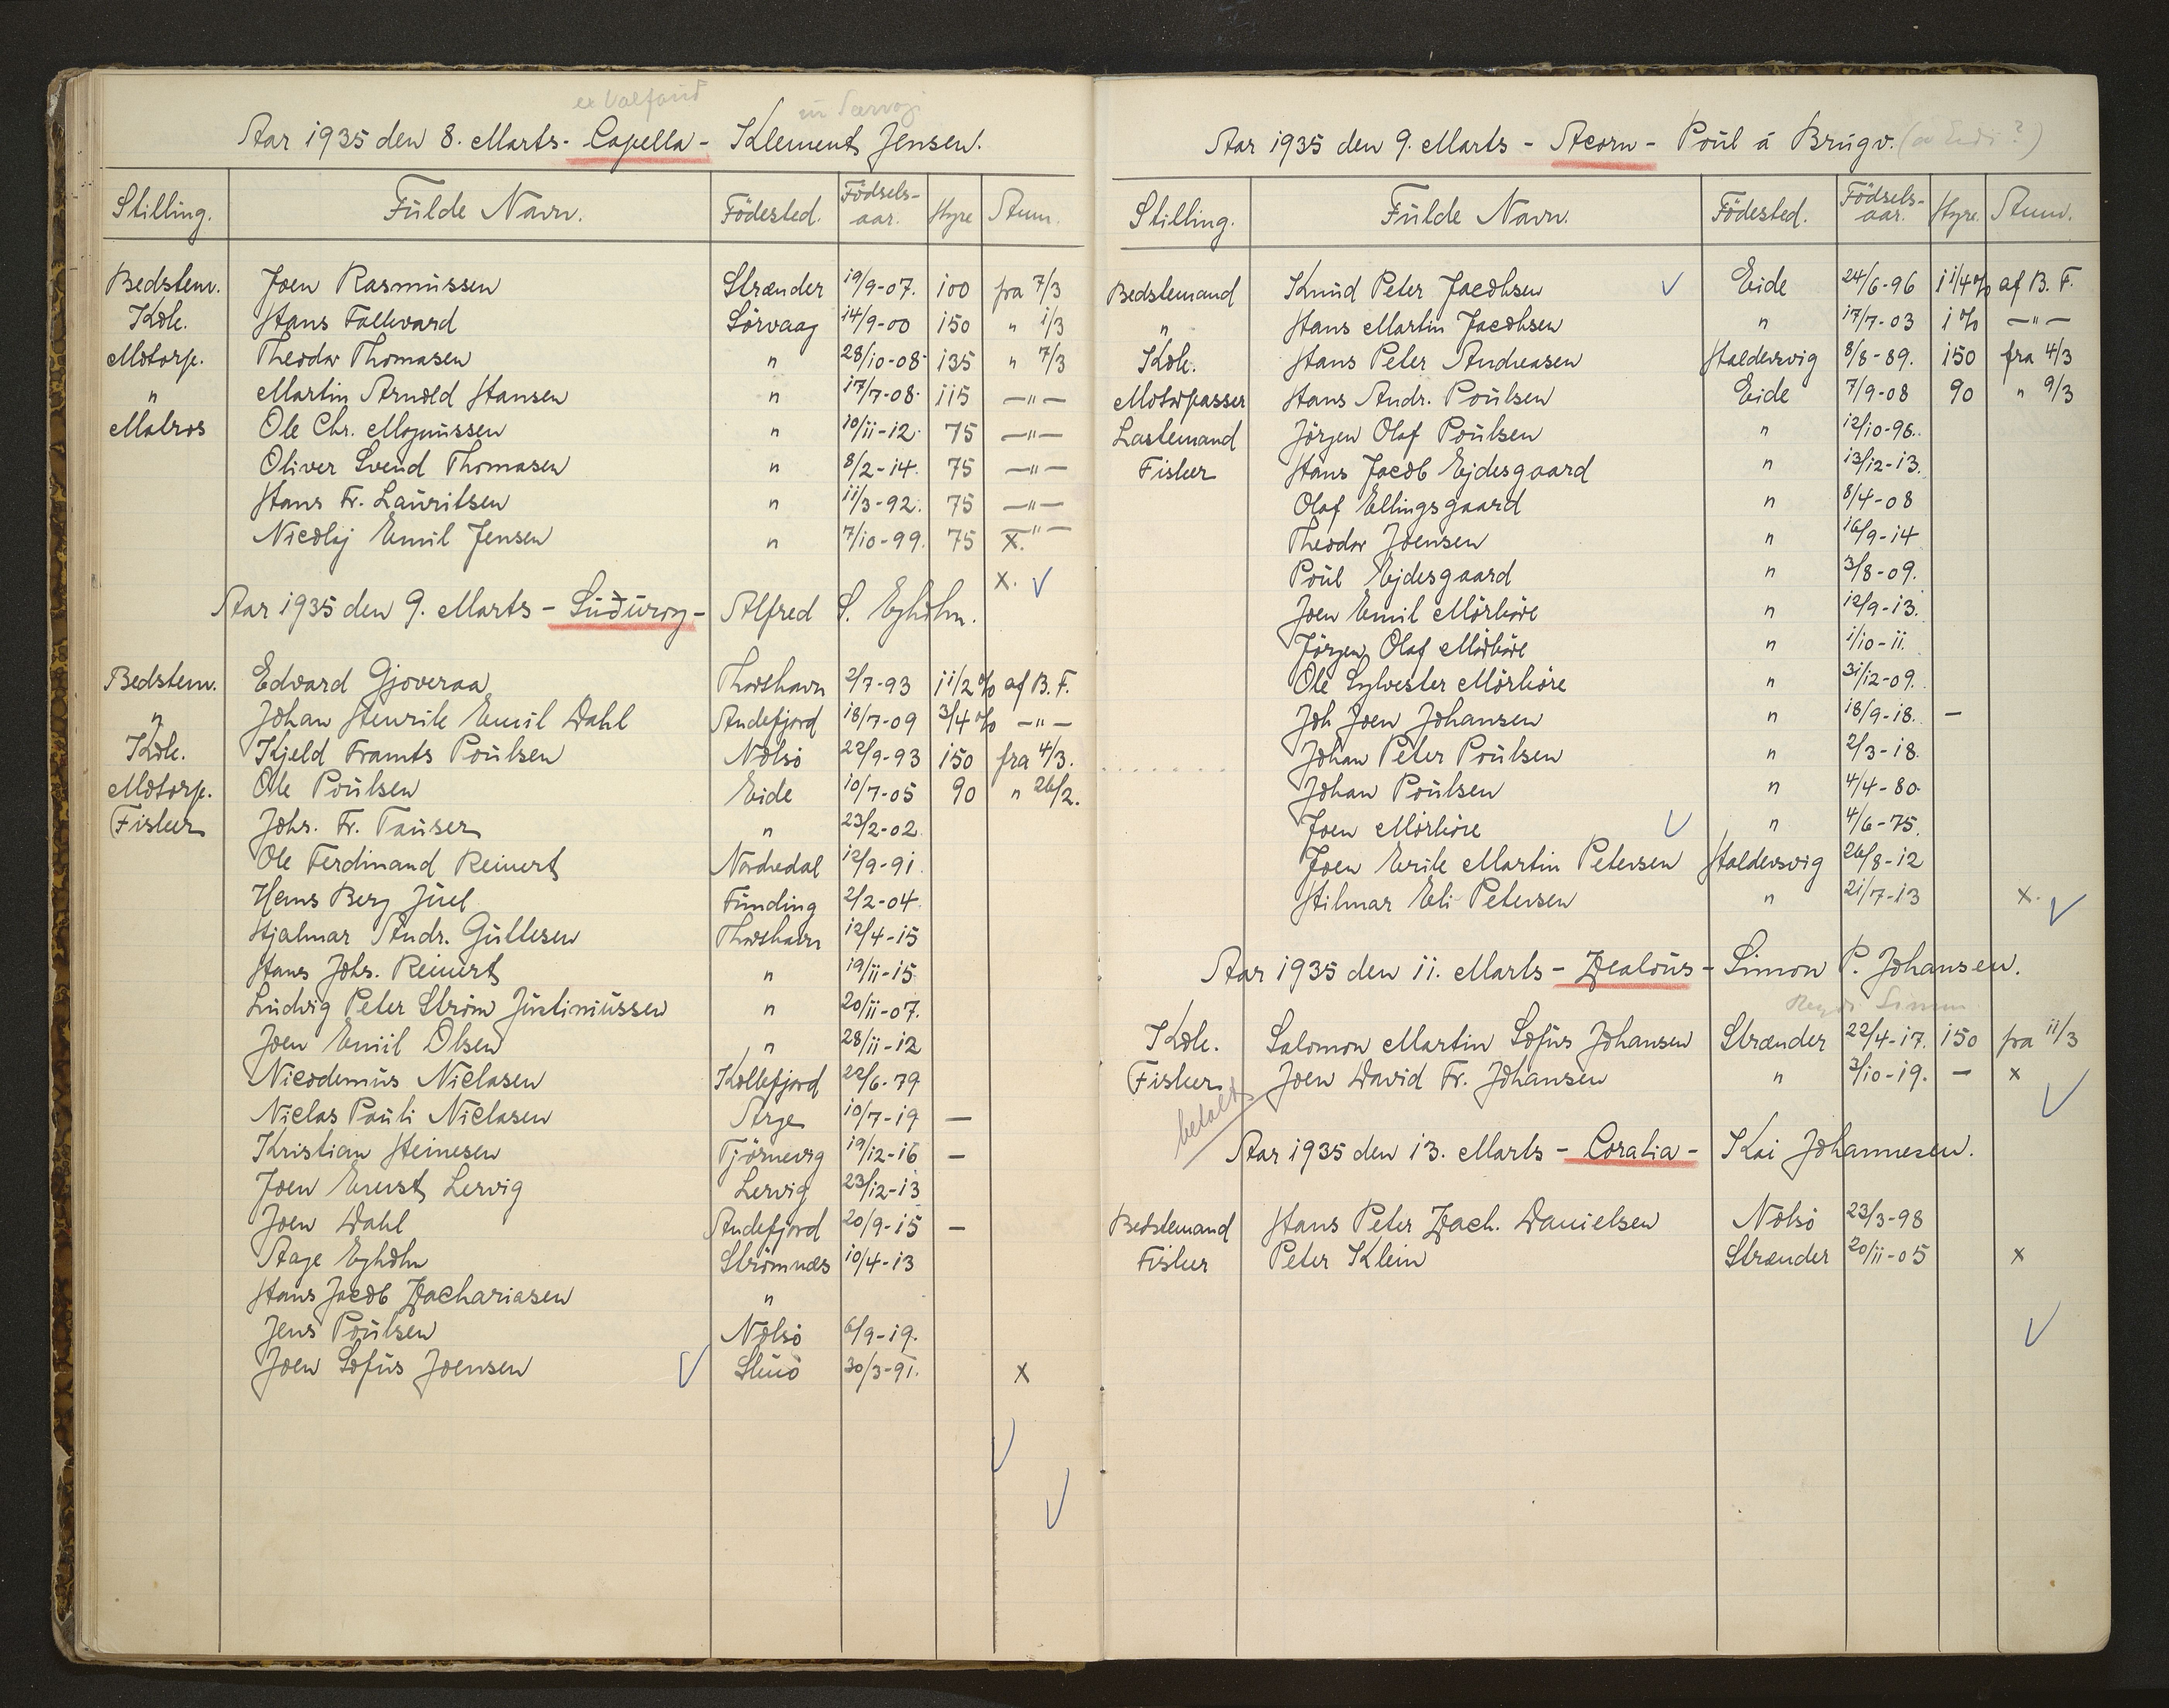 Aar 1935 den 8. Marts - Capella - Klement Jensen.
Stilling. Fulde Navn. Födested. Födsels-aar. Hyre Anm.
Bedstem. Joen Rasmussen Strænder 19/9-07. 100 fra 7/3
Kok. Hans Falkvard Sörvaag 14/9-00 150 " 1/3
Motorp. Theodor Thomasen " 28/10-08 135 " 7/3
" Martin Arnold Hansen " 17/7-08. 115 —"—
Matros Ole Chr. Magnussen " 10/11-12. 75 —"—
Oliver Svend Thomasen " 8/2-14. 75 —"—
Hans Fr. Lauritsen " 11/3-92. 75 —"—
Nicolaj Emil Jensen " 7/10-99. 75 x. "—
x.
Aar 1935 den 9. Marts - Suðuroy - Alfred S. Eyholm.
Bedstem. Edvard Gjoveraa Thorshavn 2/7-93 1 1/2 % af B. F.
" Johan Henrik Emil Dahl Andefjord 18/7-09 3/4 % —"—
Kok. Kjeld Framts Poulsen Nolsö 22/9-93 150 fra 4/3.
Motorp. Ole Poulsen Eide 10/7-05 90 " 26/2.
Fisker Johs. Fr. Tausen " 23/2-02.
Ole Ferdinand Reinert Nordredal 12/9-91.
Hans Berg Juel Funding 2/2-04.
Hjalmar Andr. Gullesen Thorshavn 12/4-15
Hans Johs. Reinert " 19/11-15.
Ludvig Peter Ström Justinussen " 20/11-07.
Joen Emil Olsen " 28/11-12
Nicodemus Niclasen Kollefjord 22/6-79
Niclas Pauli Niclasen Arge 10/7-19 —
Kristian Heinesen Tjörnevig 19/12-16 —
Joen Ernst Lervig Lervig 23/12-13
Joen Dahl Andefjord 20/9-15 —
Aage Eyholm Strömnæs 10/4-13
Hans Jacob Zachariasen "
Jens Poulsen Nolsö 6/9-19.
Joen Sofus Joensen Skuö 30/3-91. x
Aar 1935 den 9. Marts - Acorn - Poul á Brúgv. (
Stilling. Fulde Navn. Födested. Födsels-aar. Hyre. Anm.
Bedstemand Knud Peter Jacobsen Eide 24/6-96 1 1/4 % af B. F.
" Hans Martin Jacobsen " 17/7-03 1 % —"—
Kok. Hans Peter Andreasen Haldersvig 8/8-89. 150 fra 4/3
Motorpasser Hans Andr. Poulsen Eide 7/9-08 90 " 9/3
Lastemand Jörgen Olaf Poulsen " 12/10-96.
Fisker Hans Jacob Ejdesgaard " 13/12-13.
Olaf Ellingsgaard " 8/4-08
Theodor Joensen " 16/9-14
Poul Ejdesgaard " 3/8-09.
Joen Emil Mörköre " 12/9-13.
Jörgen Olaf Mörköre " 1/10-11.
Ole Sylvester Mörköre " 31/12-09.
Joh Joen Johansen " 18/9-18. —
Johan Peter Poulsen " 2/3-18.
Johan Poulsen " 4/4-80.
Joen Mörköre " 4/6-75.
Joen Erik Martin Petersen Haldersvig 26/8-12
Hilmar Eli Petersen " 21/7-13 x.
Aar 1935 den 11. Marts - Zealous - Simon P. Johansen.
Kok. Salomon Martin Sofus Johansen Strænder 22/4-17. 150 fra 11/3
Fisker Joen David Fr. Johansen " 3/10-19. — x
betalt
Aar 1935 den 13. Marts - Coralia - Kai Johannesen.
Bedstemand Hans Peter Zach. Danielsen Nolsö 23/3-98
Fisker Peter Klein Strænder 20/11-05 x